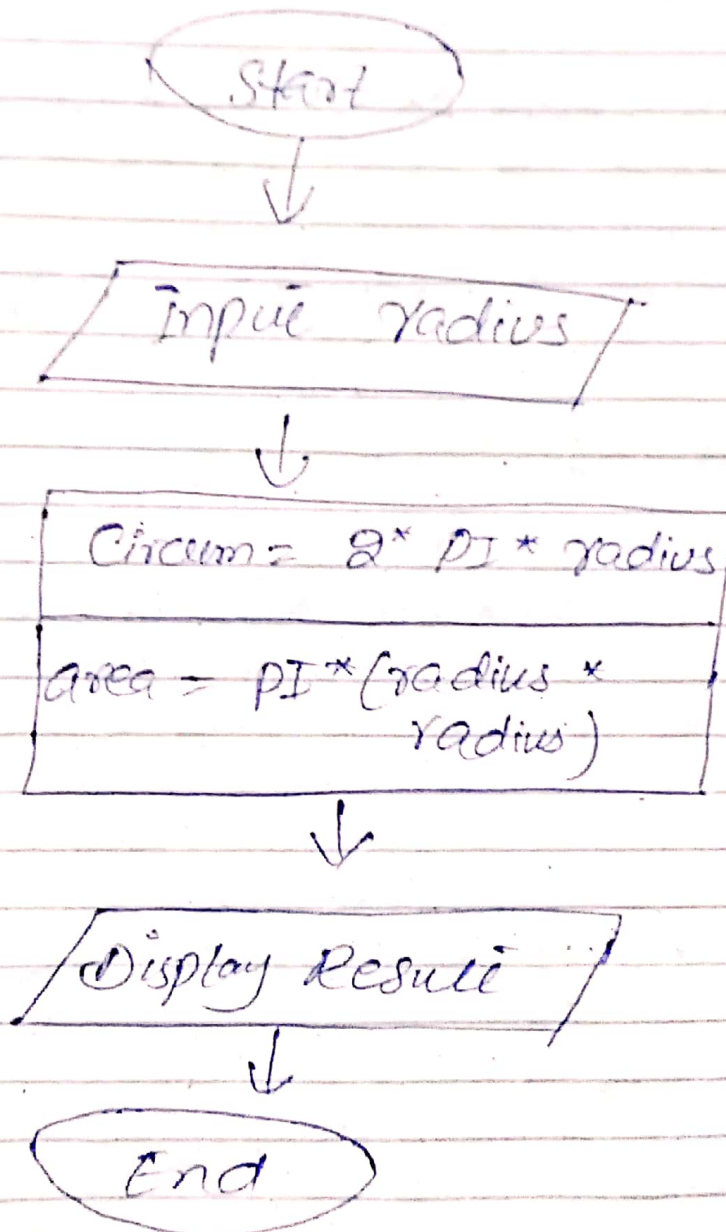 Start
Input radius
Circum = 2* PI * radius
area = PI * (radius *
radius)
Display Result
End